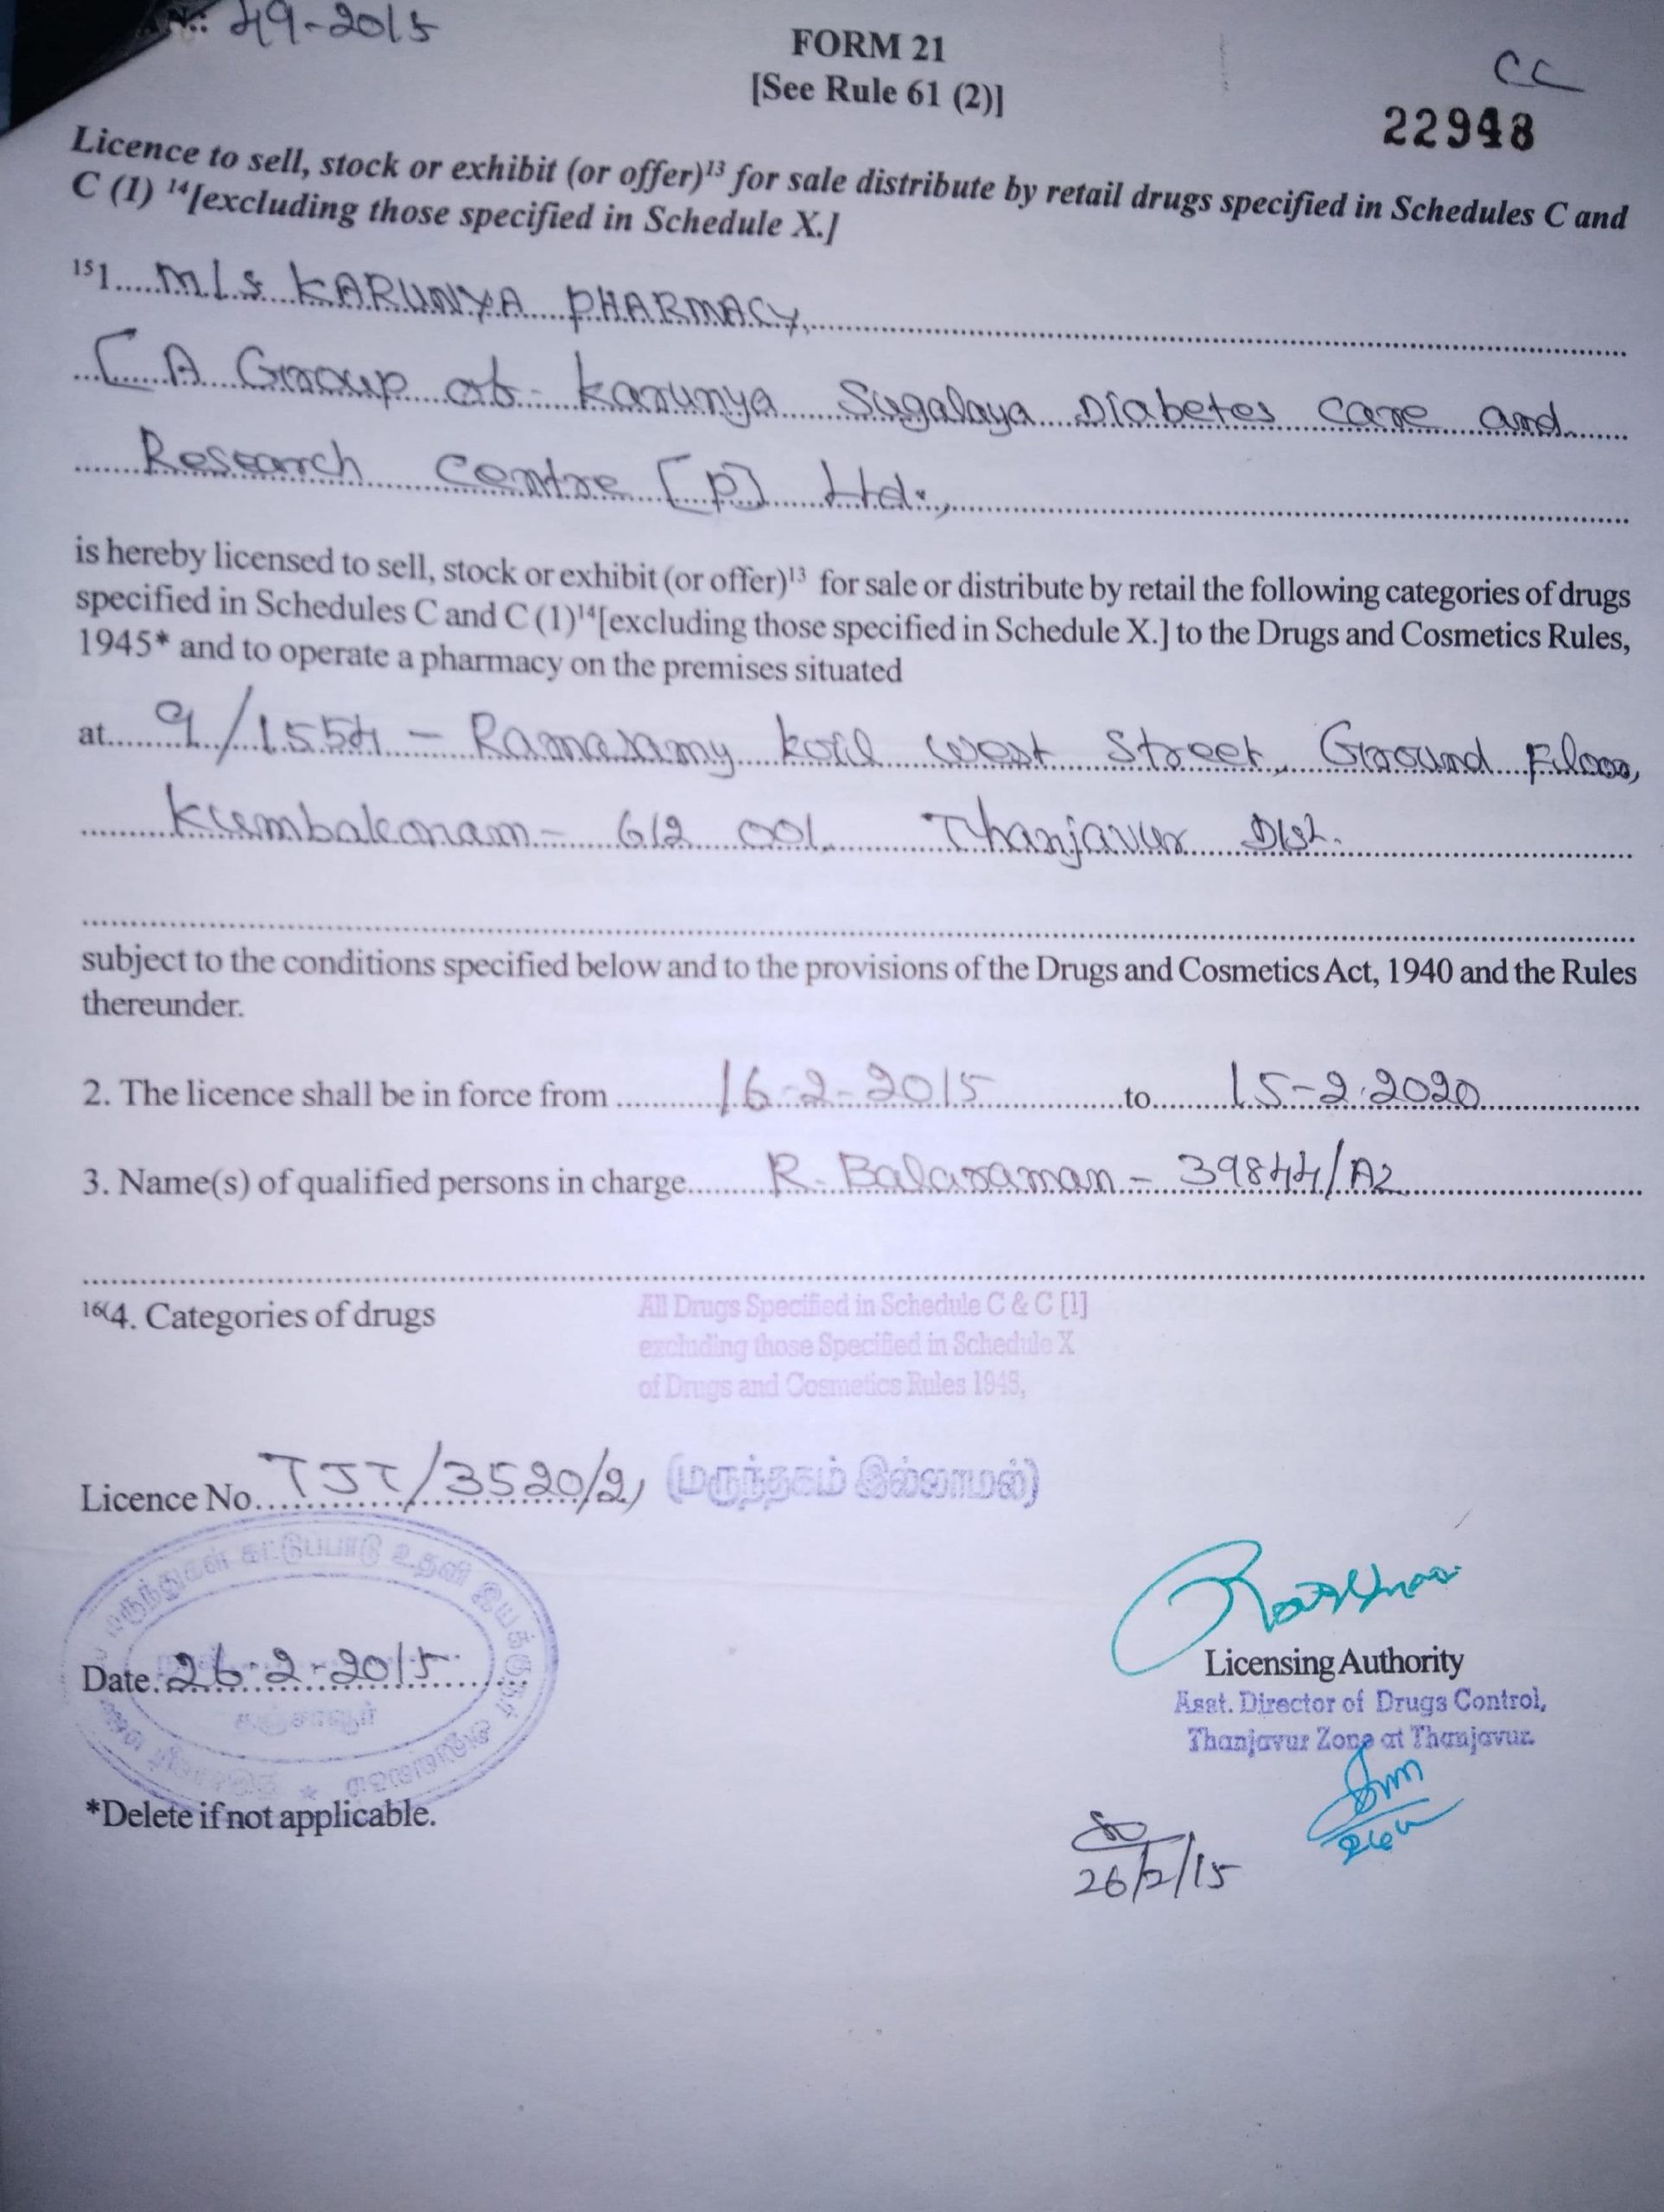 49-2015
FORM 21
[See Rule 61 (2)]
CC
22948
Licence to sell, stock or exhibit (or offer)13 for sale distribute by retail drugs specified in Schedules C and
C (1) 14[excluding those specified in Schedule X.]
15 1. M/s KARUNYA PHARMACY,
[A Group of Karunya Sugalaya Diabetes care and
Research Centre [P] Ltd.,
is hereby licensed to sell, stock or exhibit (or offer)13 for sale or distribute by retail the following categories of drugs
specified in Schedules C and C (1)14[excluding those specified in Schedule X.] to the Drugs and Cosmetics Rules,
1945* and to operate a pharmacy on the premises situated
at 9/1554 - Ramasamy koil west Street, Ground Floor,
Kumbakonam - 612 001. Thanjavur Dist.
subject to the conditions specified below and to the provisions of the Drugs and Cosmetics Act, 1940 and the Rules
thereunder.
2. The licence shall be in force from 16-2-2015 to 15-2-2020
3. Name(s) of qualified persons in charge R. Balaraman - 39844/A2
16(4. Categories of drugs
All Drugs Specified in Schedule C & C [1]
excluding those Specified in Schedule X
of Drugs and Cosmetics Rules 1945,
Licence No. TJT/3520/21 (மருந்தகம் இல்லாமல்)
மருந்துகள் கட்டுப்பாடு உதவி இயக்குநர் அலுவலகம்
Date. 26-2-2015
தஞ்சாவூர்
Licensing Authority
Asst. Director of Drugs Control,
Thanjavur Zone at Thanjavur.
*Delete if not applicable.
26/2/15